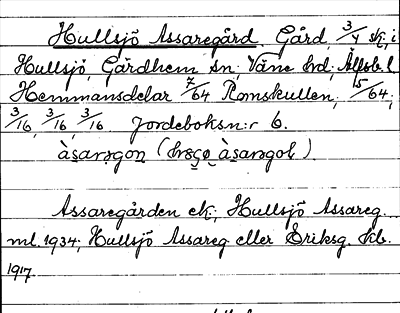 Hullsjö Assaregård. Gård, 3/4 sk; i
Hullsjö, Gärdhem sn; Väne hd; Älfsb. l.
Hemmansdelar 7/64 Romskullen, 15/64;
3/16, 3/16, 3/16. Jordeboksn:r 6.
àsarəgon
àsarəgoḷ).
Assaregården ek; Hullsjö Assareg.
ml. 1934; Hullsjö Assareg. eller Eriksg. kb.
1917